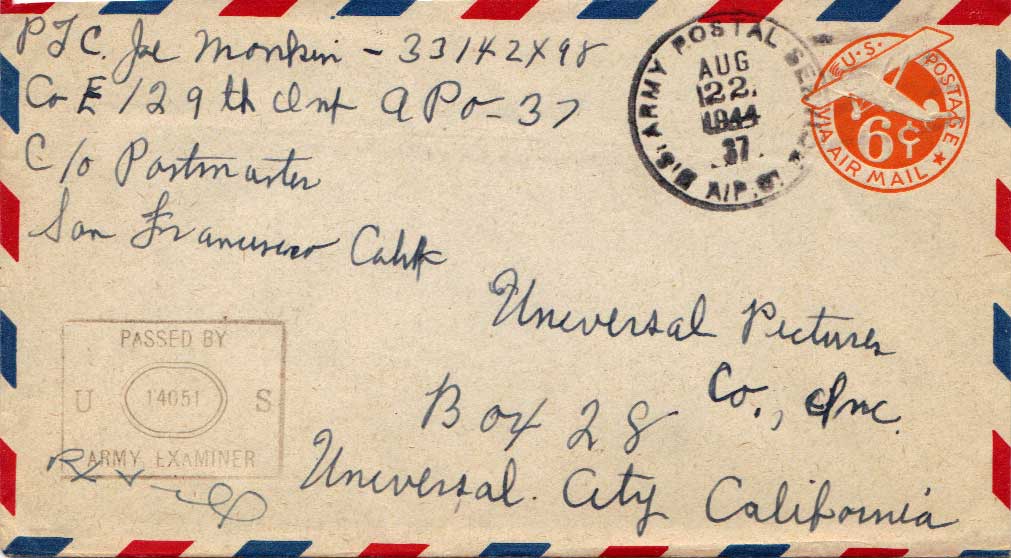 PFC. Joe Monkin - 33142498
Co E 129th Inf APO - 37
C/o Postmaster
San Francisco Calif
U.S. ARMY POSTAL SERVICE
AUG
22
1944
37
A.P.O.
U.S. POSTAGE
6¢
VIA AIR MAIL
Universal Pictures
Co., Inc.
Box 28
Universal City California
PASSED BY
U 14051 S
ARMY EXAMINER